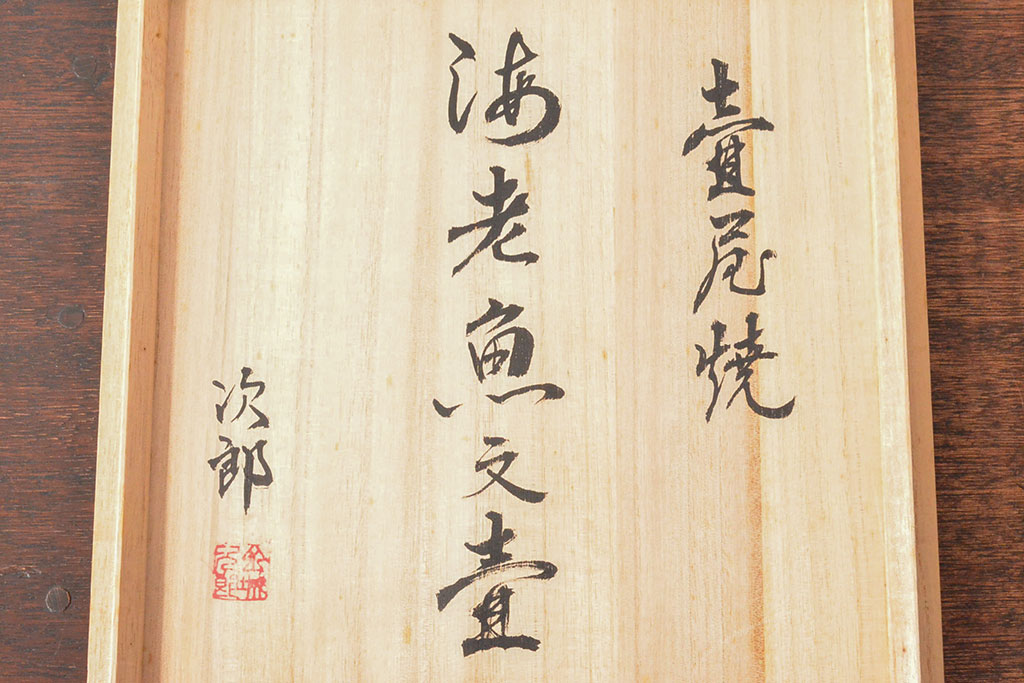 壺屋焼
海老魚文壺
次郎